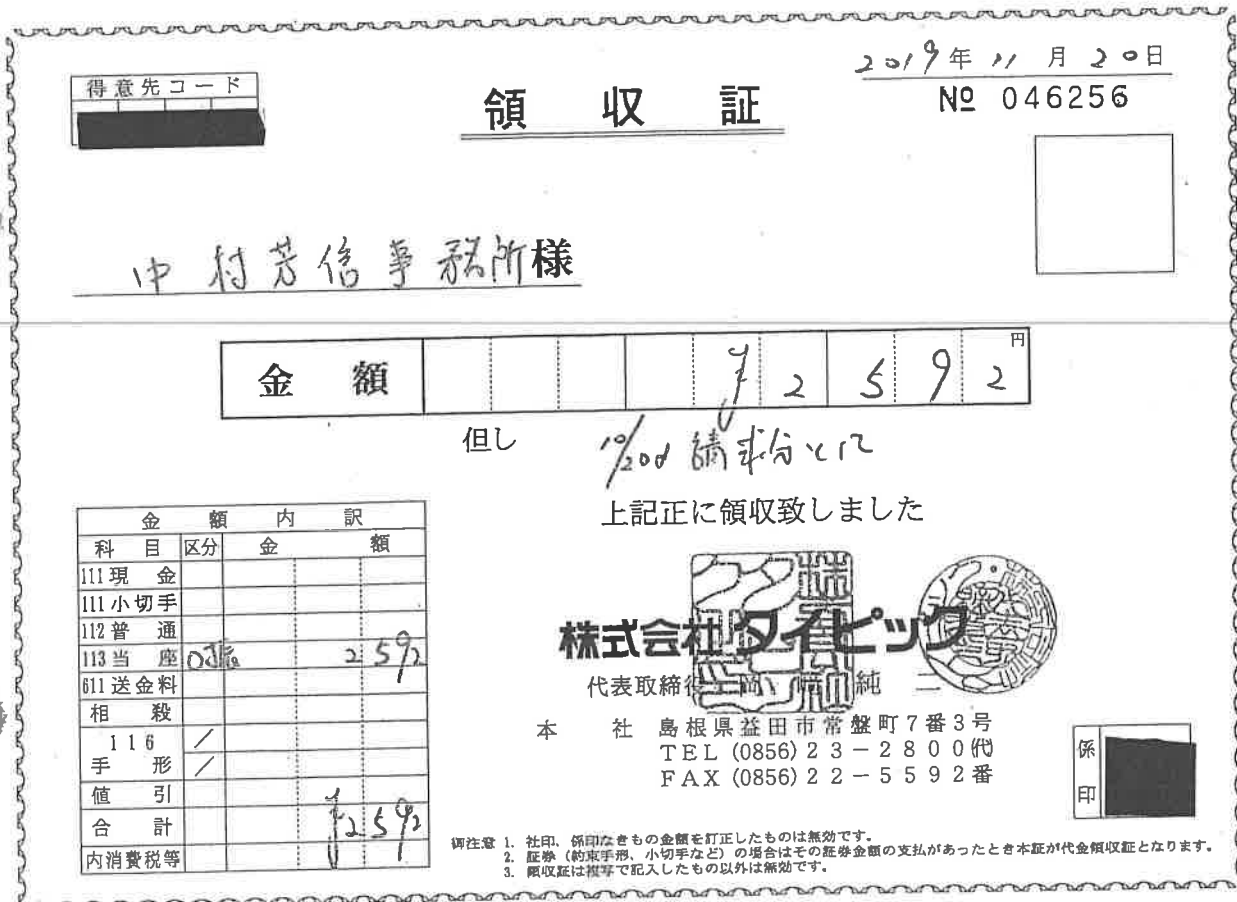 2019年11月20日
得意先コード
領収証
№ 046256
中村芳信事務所様
金額 ¥2592円
但し 10/20d 請求分として
上記正に領収致しました
金額内訳
科目 区分 金額
111 現金
111 小切手
112 普通
113 当座 2592
611 送金料
相殺
116 /
手形 /
値引
合計 ¥2592
内消費税等
株式会社タイピック
代表取締役 純二
本社 島根県益田市常盤町7番3号
TEL (0856) 23-2800㈹
FAX (0856) 22-5592番
係印
御注意 1. 社印、係印なきもの金額を訂正したものは無効です。
2. 証券（約束手形、小切手など）の場合はその証券金額の支払があったとき本証が代金領収証となります。
3. 領収証は複写で記入したもの以外は無効です。